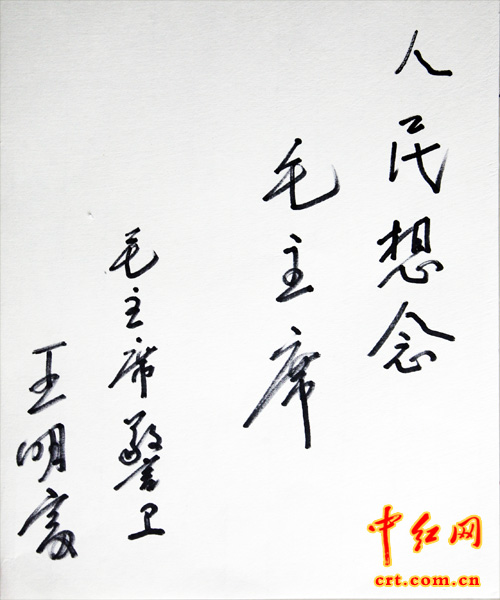 人民想念
毛主席
毛主席警卫
王明富
中红网
crt.com.cn